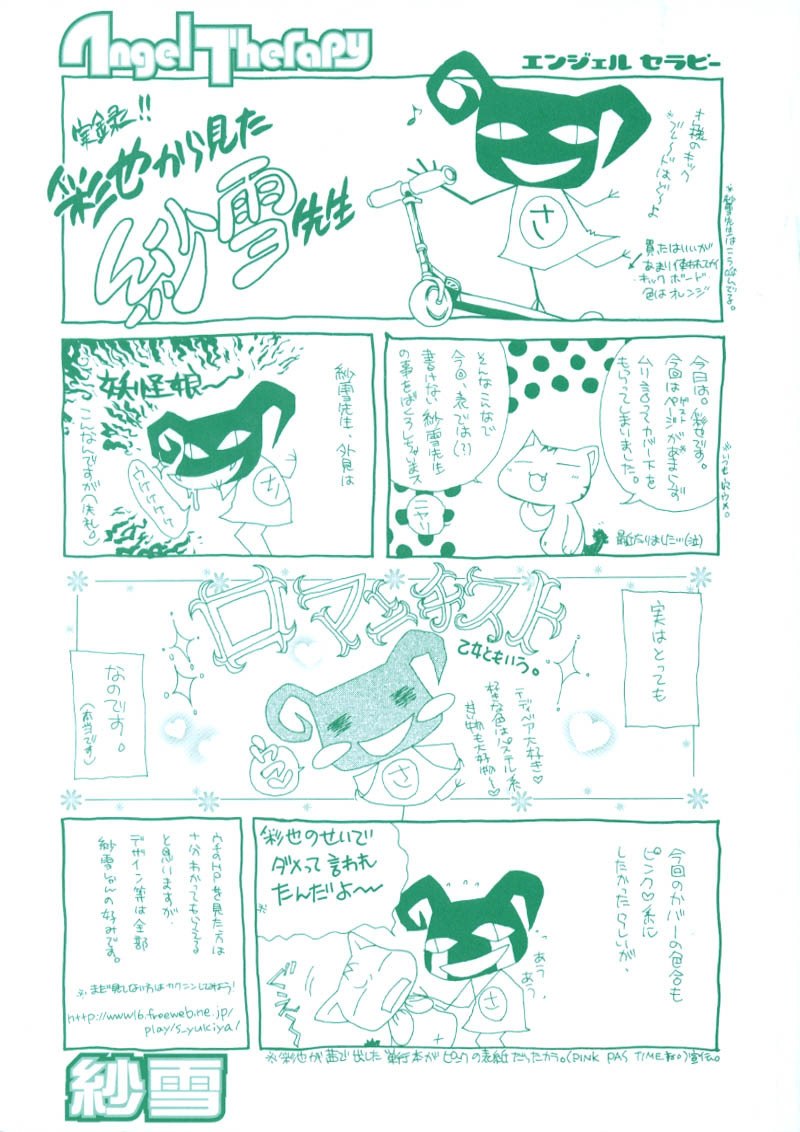 Angel Therapy
エンジェル セラピー
実録!!
彩也から見た
紗雪先生
♪
さ
買ったはいいが
あまり使われてない
キックボード
色はオレンジ
今日は。彩也です。
今回はページがあまらず
ムリ言ってカバー下を
もらってしまいました。
そんなこんなで
今回、表では(?)
書けない紗雪先生
の事をばくろしちゃいまス
ニヤリ
紗雪先生、外見は
妖怪娘〜
さ
ウケケケケ
こんなんですが(失礼。)
実はとっても
ロマンチスト
乙女ともいう。
テディベア大好き♡
好きな色はパステル系
甘い物も大好物〜♡
さ
なのです。
(本当です)
今回のカバーの色合も
ピンク♡系に
したかったらしいが、
彩也のせいで
ダメって言われ
たんだよ〜
※
あう
あう
さ
ウチのHPを見た方は
十分わかってもらえてる
と思いますが、
デザイン等は全部
紗雪しゃんの好みです。
※まだ見てない方はカクニンしてみよう!
http://www16.freeweb.ne.jp/
play/s_yukiya/
※彩也が茜で出した単行本がピンクの表紙だったカラ。
紗雪